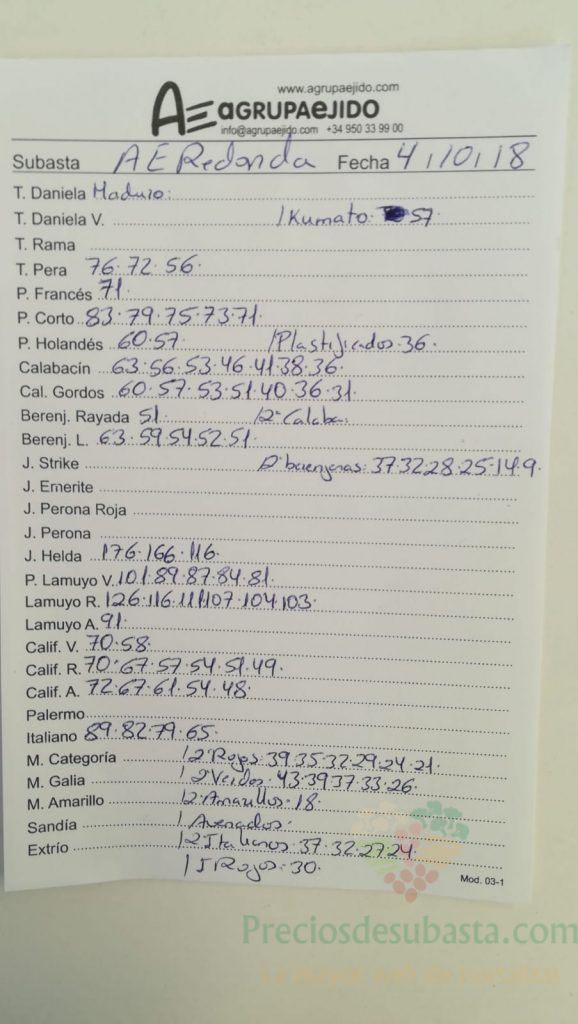 www.agrupaejido.com
AE AGRUPAEJIDO
info@agrupaejido.com +34 950 33 99 00
Subasta AE Redonda Fecha 4/10/18
T. Daniela Maduro:
T. Daniela V. / Kumato 57
T. Rama
T. Pera 76·72·56·
P. Francés 71
P. Corto 83·79·75·73·71·
P. Holandés 60·57· / Plastificados 36·
Calabacín 63·56·53·46·41·38·36·
Cal. Gordos 60·57·53·51·40·36·31·
Berenj. Rayada 51· / 2ª Calaba:
Berenj. L. 63·59·54·52·51·
J. Strike berenjenas: 37·32·28·25·14·9·
J. Emerite
J. Perona Roja
J. Perona
J. Helda 176·166·116·
P. Lamuyo V. 101·89·87·84·81·
Lamuyo R. 126·116·111·107·104·103·
Lamuyo A. 91·
Calif. V. 70·58·
Calif. R. 70·67·57·54·51·49·
Calif. A. 72·67·61·54·48·
Palermo
Italiano 89·82·79·65·
M. Categoría / 2ª Rojos 39·35·32·29·24·21·
M. Galia / 2ª Verdes 43·39·37·33·26·
M. Amarillo / 2ª Amarillos 18·
Sandía /
Extrío / 2ª Italianos 37·32·27·24·
/ I Rojos 30·
Mod. 03-1
Preciosdesubasta.com